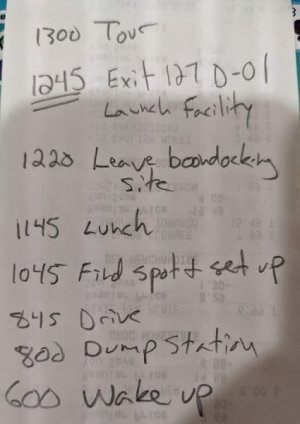 1300 Tour
1245 Exit 127 D-01
Launch Facility
1220 Leave boondocking
site
1145 Lunch
1045 Find spot & set up
845 Drive
800 Dump Station
600 Wake up